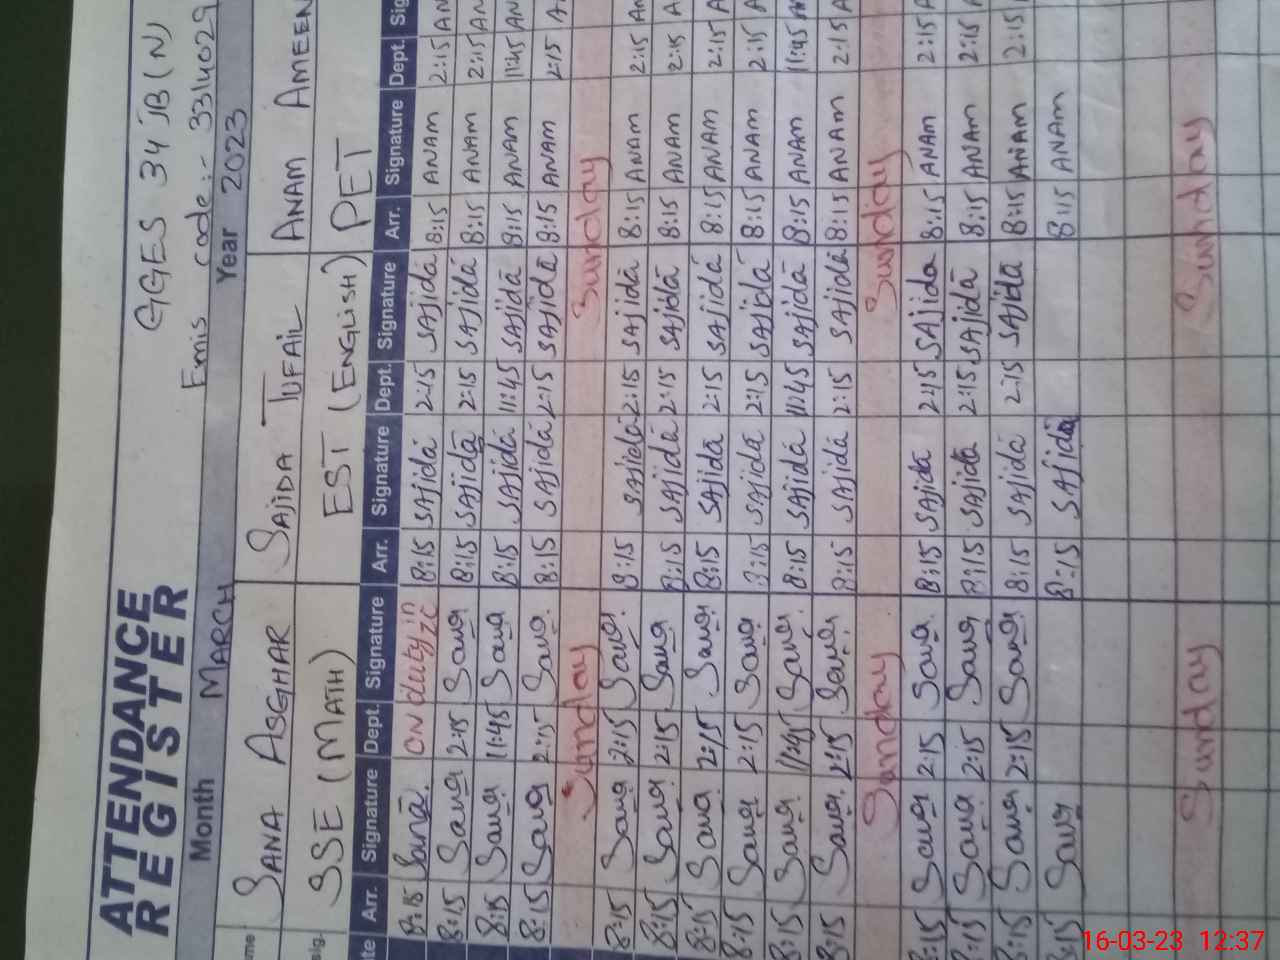 ATTENDANCE REGISTER
GGES 34 JB (N)
Emis code:- 3314029
Month MARCH Year 2023
SANA ASGHAR SAJIDA TUFAIL ANAM AMEEN
SSE (MATH) EST (ENGLISH) PET
Arr. Signature Dept. Signature Arr. Signature Dept. Signature Arr. Signature Dept.
8:15 Sana. ON duty in ZC 8:15 SAjida 2:15 SAjida 8:15 ANAM 2:15
8:15 Sana 2:15 Sana 8:15 SAjida 2:15 SAjida 8:15 ANAM 2:15
8:15 Sana 11:45 Sana 8:15 SAjida 11:45 SAjida 8:15 ANAM 11:45
8:15 Sana 2:15 Sana. 8:15 SAjida 2:15 SAjida 8:15 ANAM 2:15
Sunday Sunday
8:15 Sana 2:15 Sana. 8:15 SAjida 2:15 SAjida 8:15 ANAM 2:15
8:15 Sana. 2:15 Sana 8:15 SAjida 2:15 SAjida 8:15 ANAM 2:15
8:15 Sana 2:15 Sana 8:15 SAjida 2:15 SAjida 8:15 ANAM 2:15
8:15 Sana 2:15 Sana 8:15 SAjida 2:15 SAjida 8:15 ANAM 2:15
8:15 Sana. 11:45 Sana. 8:15 SAjida 11:45 SAjida 8:15 ANAM 11:45
8:15 Sana. 2:15 Sana. 8:15 SAjida 2:15 SAjida 8:15 ANAM 2:15
Sunday Sunday
8:15 Sana 2:15 Sana. 8:15 SAjida 2:15 SAjida 8:15 ANAM 2:15
8:15 Sana. 2:15 Sana 8:15 SAjida 2:15 SAjida 8:15 ANAM 2:15
8:15 Sana 2:15 Sana 8:15 SAjida 2:15 SAjida 8:15 ANAM 2:15
8:15 Sana 8:15 SAjida 8:15 ANAM
Sunday Sunday
16-03-23 12:37